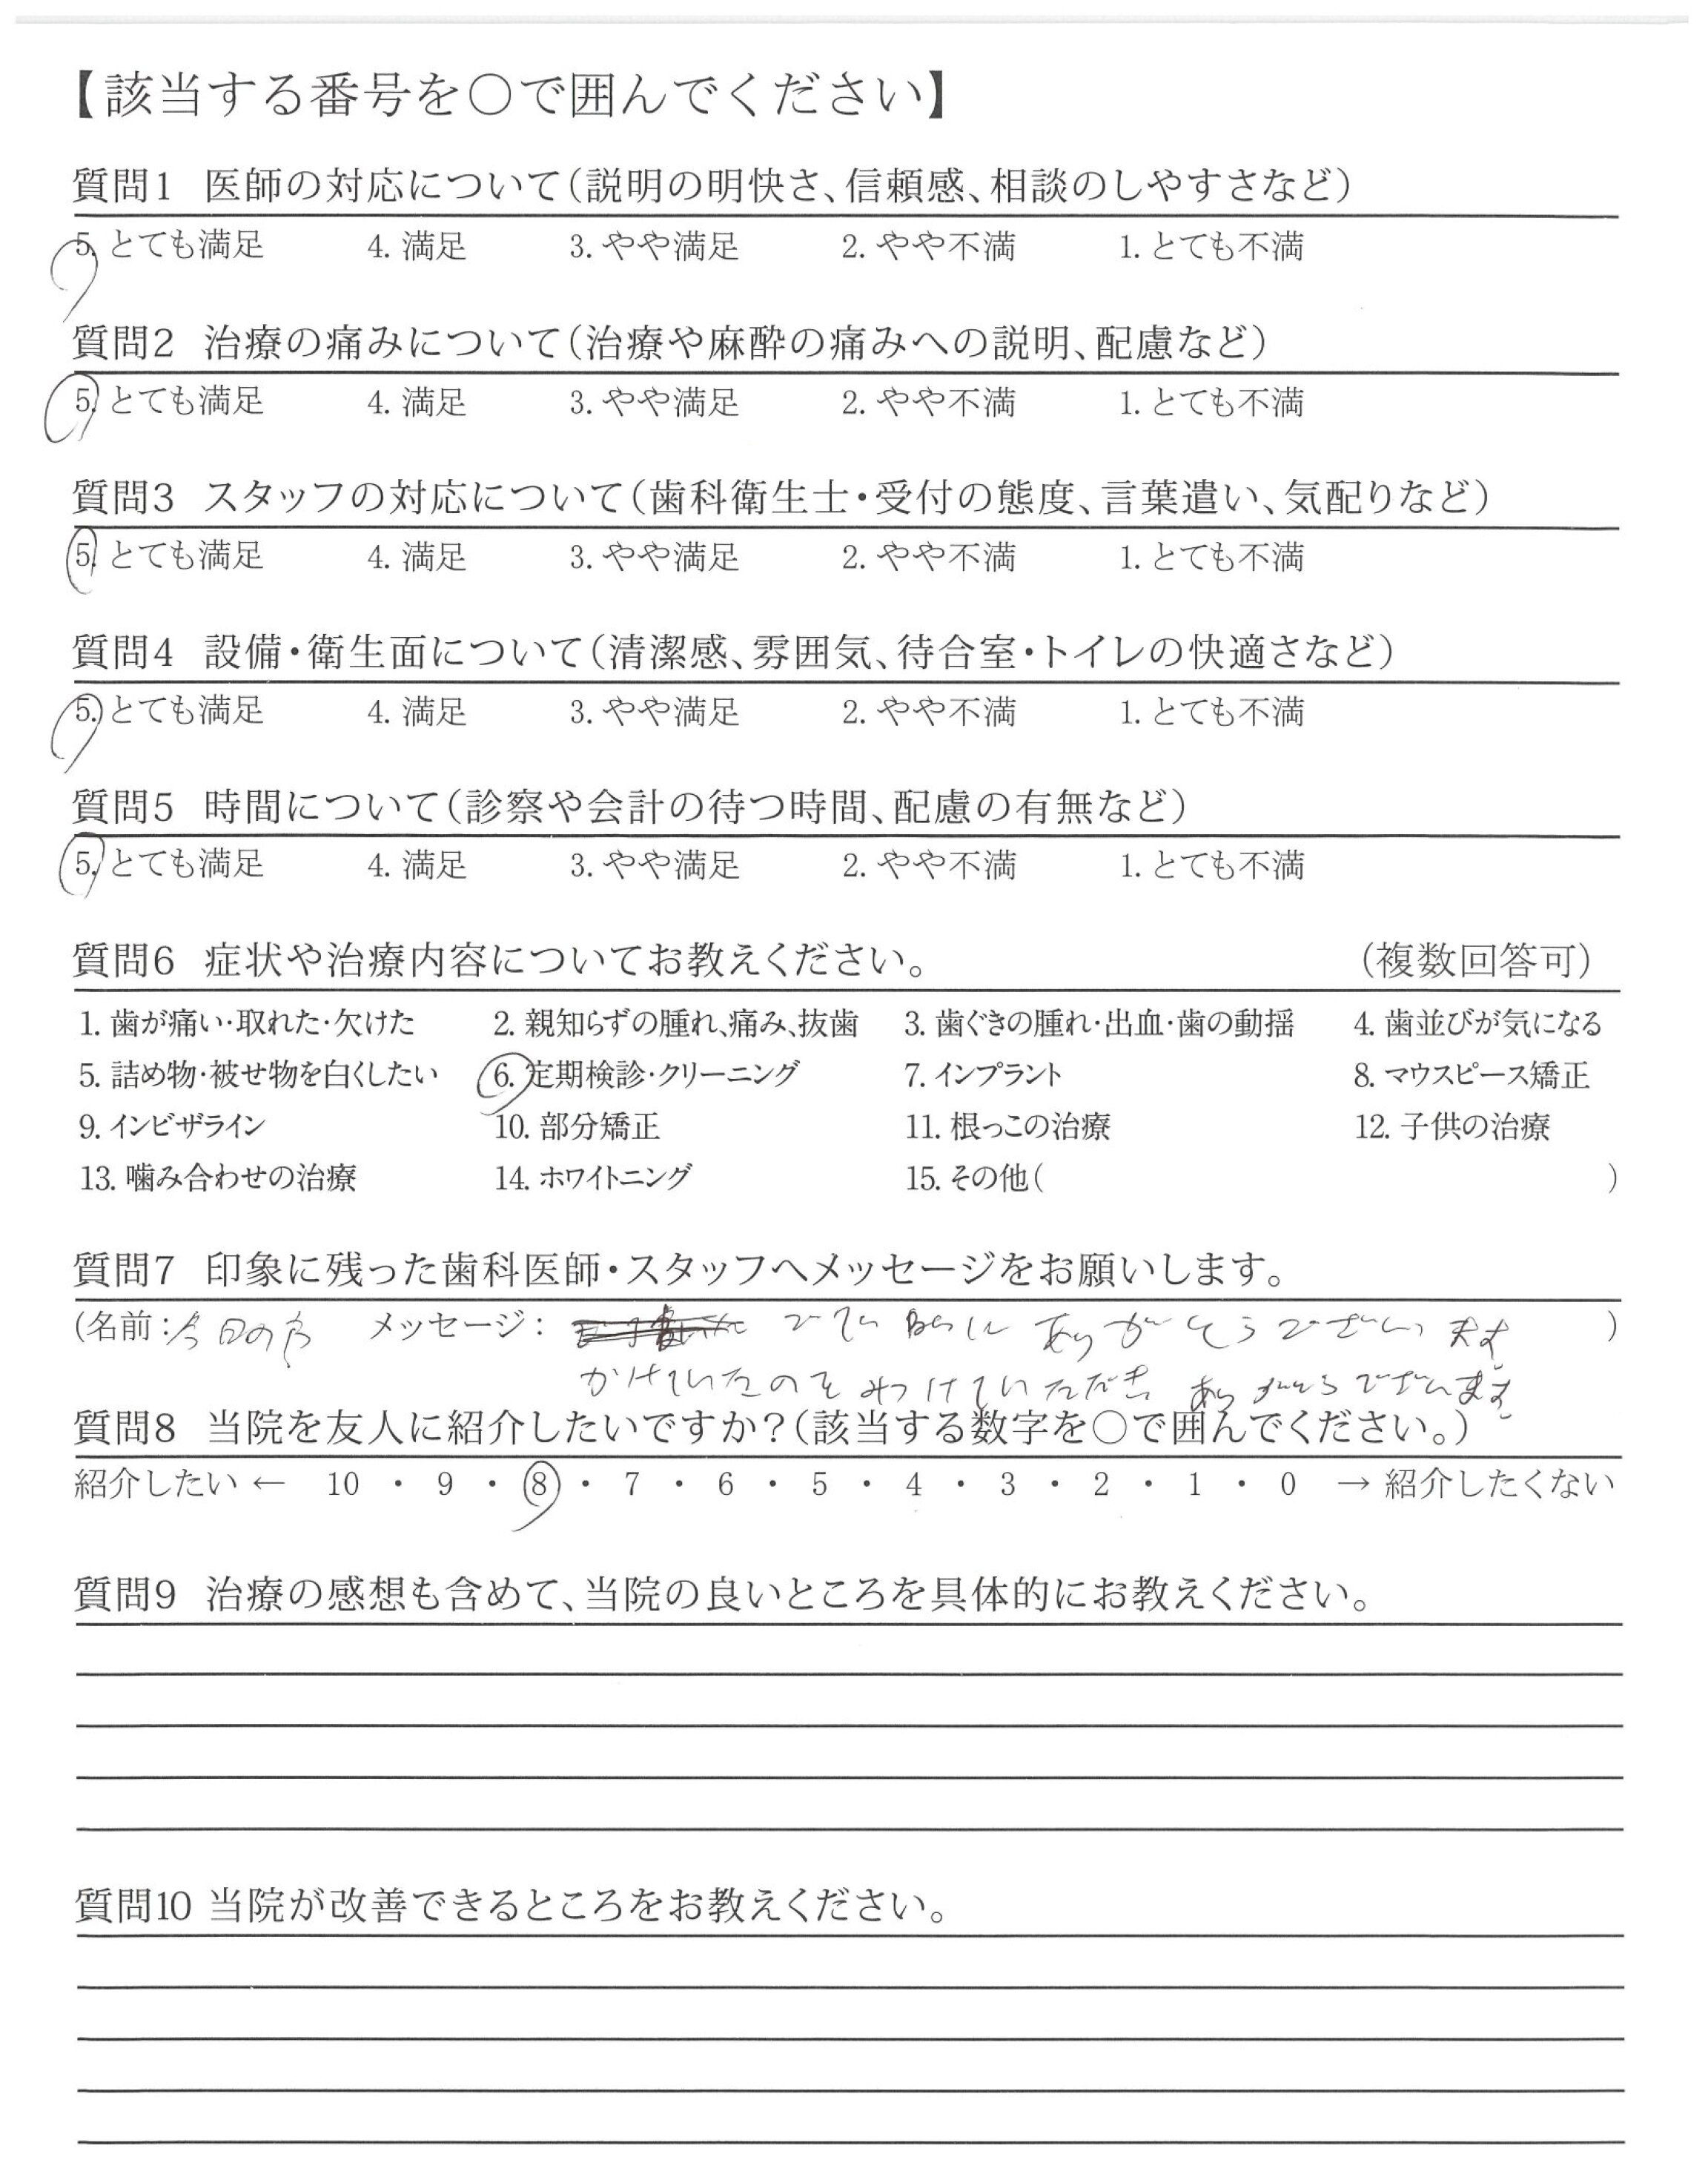 【該当する番号を○で囲んでください】
質問1 医師の対応について（説明の明快さ、信頼感、相談のしやすさなど）
5. とても満足 4. 満足 3. やや満足 2. やや不満 1. とても不満
質問2 治療の痛みについて（治療や麻酔の痛みへの説明、配慮など）
5. とても満足 4. 満足 3. やや満足 2. やや不満 1. とても不満
質問3 スタッフの対応について（歯科衛生士・受付の態度、言葉遣い、気配りなど）
5. とても満足 4. 満足 3. やや満足 2. やや不満 1. とても不満
質問4 設備・衛生面について（清潔感、雰囲気、待合室・トイレの快適さなど）
5. とても満足 4. 満足 3. やや満足 2. やや不満 1. とても不満
質問5 時間について（診察や会計の待つ時間、配慮の有無など）
5. とても満足 4. 満足 3. やや満足 2. やや不満 1. とても不満
質問6 症状や治療内容についてお教えください。 （複数回答可）
1. 歯が痛い・取れた・欠けた 2. 親知らずの腫れ、痛み、抜歯 3. 歯ぐきの腫れ・出血・歯の動揺 4. 歯並びが気になる
5. 詰め物・被せ物を白くしたい 6. 定期検診・クリーニング 7. インプラント 8. マウスピース矯正
9. インビザライン 10. 部分矯正 11. 根っこの治療 12. 子供の治療
13. 噛み合わせの治療 14. ホワイトニング 15. その他( )
質問7 印象に残った歯科医師・スタッフへメッセージをお願いします。
（名前：今日の方 メッセージ： ありがとうございます ）
かけていたのをみつけていただき ありがとうございます
質問8 当院を友人に紹介したいですか？（該当する数字を○で囲んでください。）
紹介したい ← 10 ・ 9 ・ 8 ・ 7 ・ 6 ・ 5 ・ 4 ・ 3 ・ 2 ・ 1 ・ 0 → 紹介したくない
質問9 治療の感想も含めて、当院の良いところを具体的にお教えください。
質問10 当院が改善できるところをお教えください。